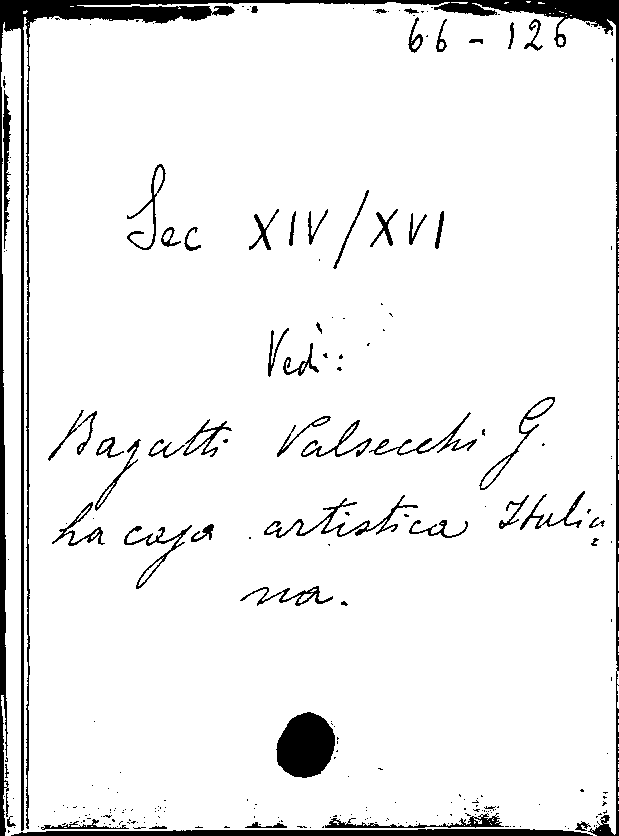 66-126
Sec XIV/XVI
Vedi:
Bagatti Valsecchi G.
La casa artistica Italia=
na.